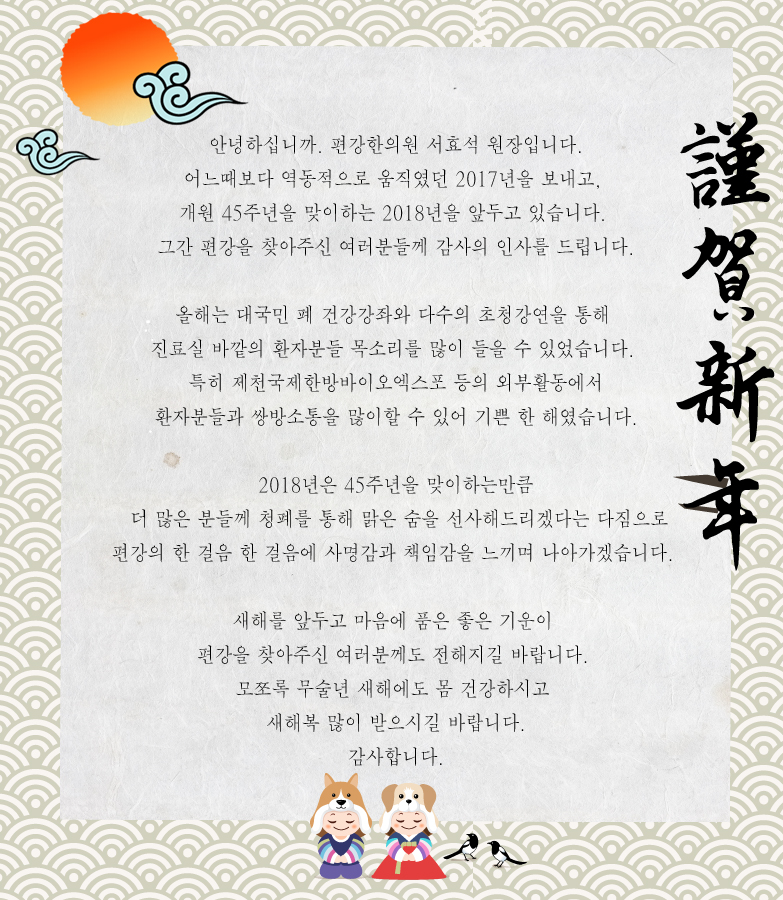 안녕하십니까. 편강한의원 서효석 원장입니다.
어느때보다 역동적으로 움직였던 2017년을 보내고,
개원 45주년을 맞이하는 2018년을 앞두고 있습니다.
그간 편강을 찾아주신 여러분들께 감사의 인사를 드립니다.
올해는 대국민 폐 건강강좌와 다수의 초청강연을 통해
진료실 바깥의 환자분들 목소리를 많이 들을 수 있었습니다.
특히 제천국제한방바이오엑스포 등의 외부활동에서
환자분들과 쌍방소통을 많이할 수 있어 기쁜 한 해였습니다.
2018년은 45주년을 맞이하는만큼
더 많은 분들께 청폐를 통해 맑은 숨을 선사해드리겠다는 다짐으로
편강의 한 걸음 한 걸음에 사명감과 책임감을 느끼며 나아가겠습니다.
새해를 앞두고 마음에 품은 좋은 기운이
편강을 찾아주신 여러분께도 전해지길 바랍니다.
모쪼록 무술년 새해에도 몸 건강하시고
새해복 많이 받으시길 바랍니다.
감사합니다.
謹賀新年